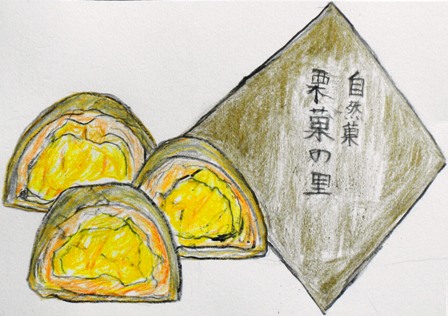 自然菓
栗菓の里